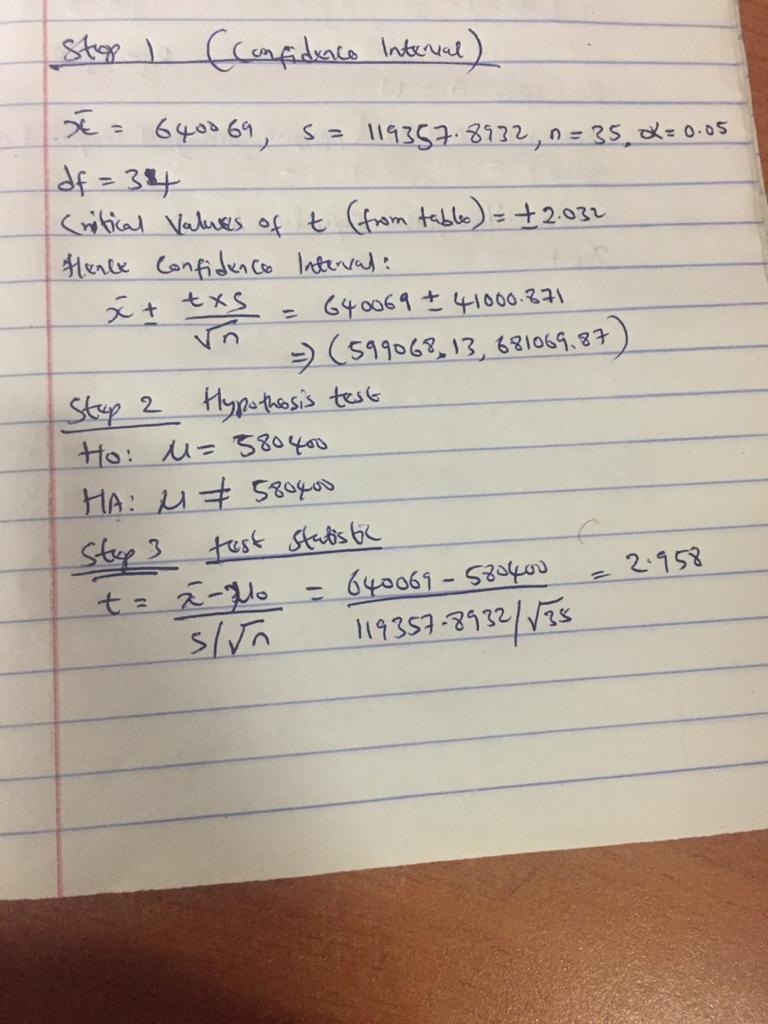 Step 1 (Confidence Interval)
x̄ = 640069, s = 119357.8932, n = 35, α = 0.05
df = 34
Critical Values of t (from tables) = ± 2.032
Hence Confidence Interval:
x̄ ± (t × s)/√n = 640069 ± 41000.871
⇒ (599068.13, 681069.87)
Step 2 Hypothesis test
Ho: μ = 580400
HA: μ ≠ 580400
Step 3 test statistic
t = (x̄ - μ₀)/(s/√n) = (640069 - 580400)/(119357.8932/√35) = 2.958